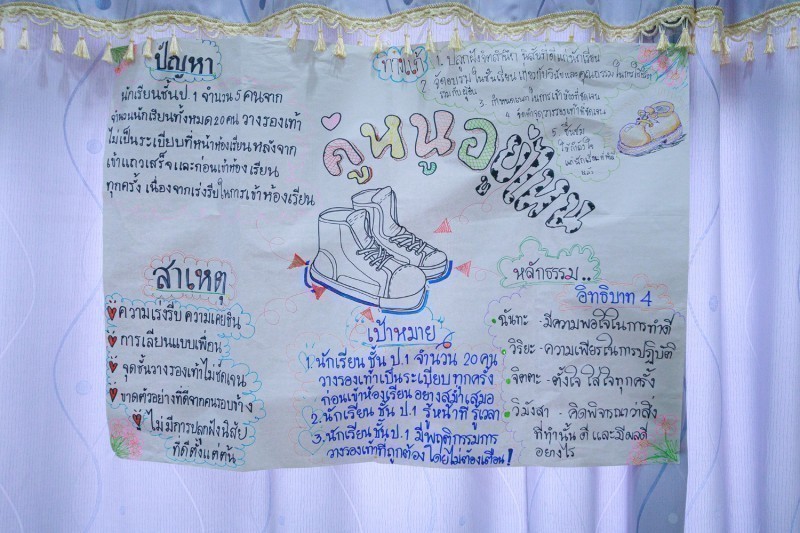 ปัญหา
นักเรียนชั้น ป.1 จำนวน 5 คนจาก
จำนวนนักเรียนทั้งหมด 20 คน วางรองเท้า
ไม่เป็นระเบียบที่หน้าห้องเรียน หลังจาก
เข้าแถวเสร็จและก่อนเข้าห้องเรียน
ทุกครั้ง เนื่องจากเร่งรีบในการเข้าห้องเรียน
ทางแก้
1. ปลูกฝังจิตสำนึก
3. กำหนดเวลาในการเข้าห้องชัดเจน
4. จัดทำจุดวางรองเท้าที่ชัดเจน
5. ชื่นชม
คู่หนูอยู่ไหน
สาเหตุ
ความเร่งรีบ ความเคยชิน
การเลียนแบบเพื่อน
จุดชั้นวางรองเท้าไม่ชัดเจน
ขาดตัวอย่างที่ดีจากคนรอบข้าง
ไม่มีการปลูกฝังนิสัย
ที่ดีตั้งแต่ต้น
เป้าหมาย
1. นักเรียน ชั้น ป.1 จำนวน 20 คน
วางรองเท้าเป็นระเบียบ ทุกครั้ง
ก่อนเข้าห้องเรียน อย่างสม่ำเสมอ
2. นักเรียน ชั้น ป.1 รู้หน้าที่ รู้เวลา
3. นักเรียน ชั้น ป.1 มีพฤติกรรมการ
วางรองเท้าที่ถูกต้อง โดยไม่ต้องเตือน!
หลักธรรม..
อิทธิบาท 4
ฉันทะ - มีความพอใจในการทำดี
วิริยะ - ความเพียรในการปฏิบัติ
จิตตะ - ตั้งใจ ใส่ใจทุกครั้ง
วิมังสา - คิดพิจารณาว่าสิ่ง
ที่ทำนั้น ดี และมีผลดี
อย่างไร